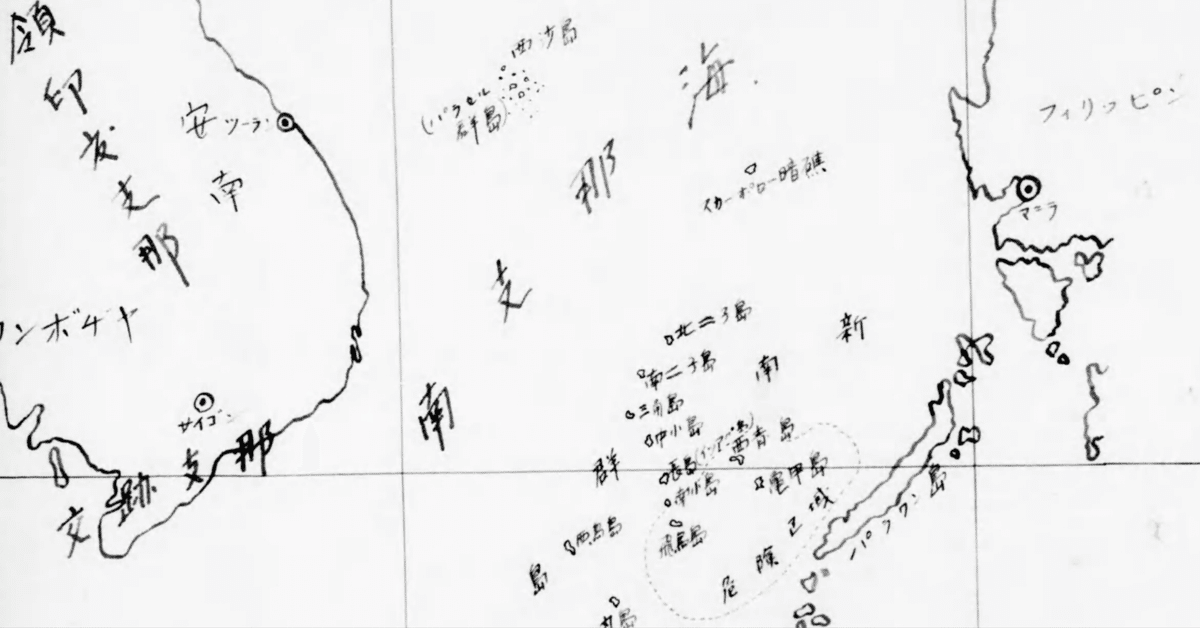 領印度支那
安南
ツーラン
カンボヂヤ
サイゴン
交趾支那
西沙島
(パラセル群島)
南支那海
スカーボロー暗礁
フィリッピン
マニラ
新南群島
北二子島
南二子島
三角島
中小島
長島
西青島
南小島
亀甲島
飛鳥島
西鳥島
丸島
危険区域
パラワン島